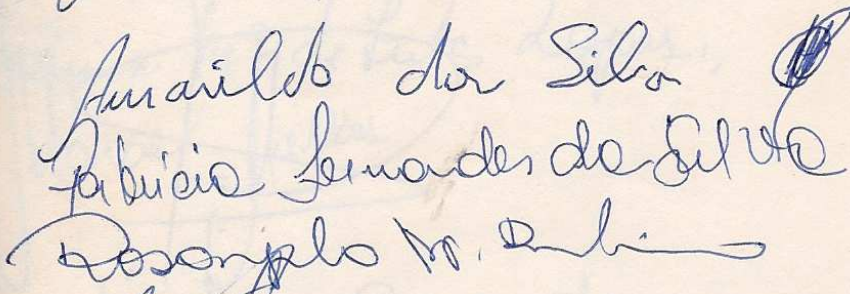 Amarildo da Silva
Fabricia Fernandes da Silva
Rosangela Ap.